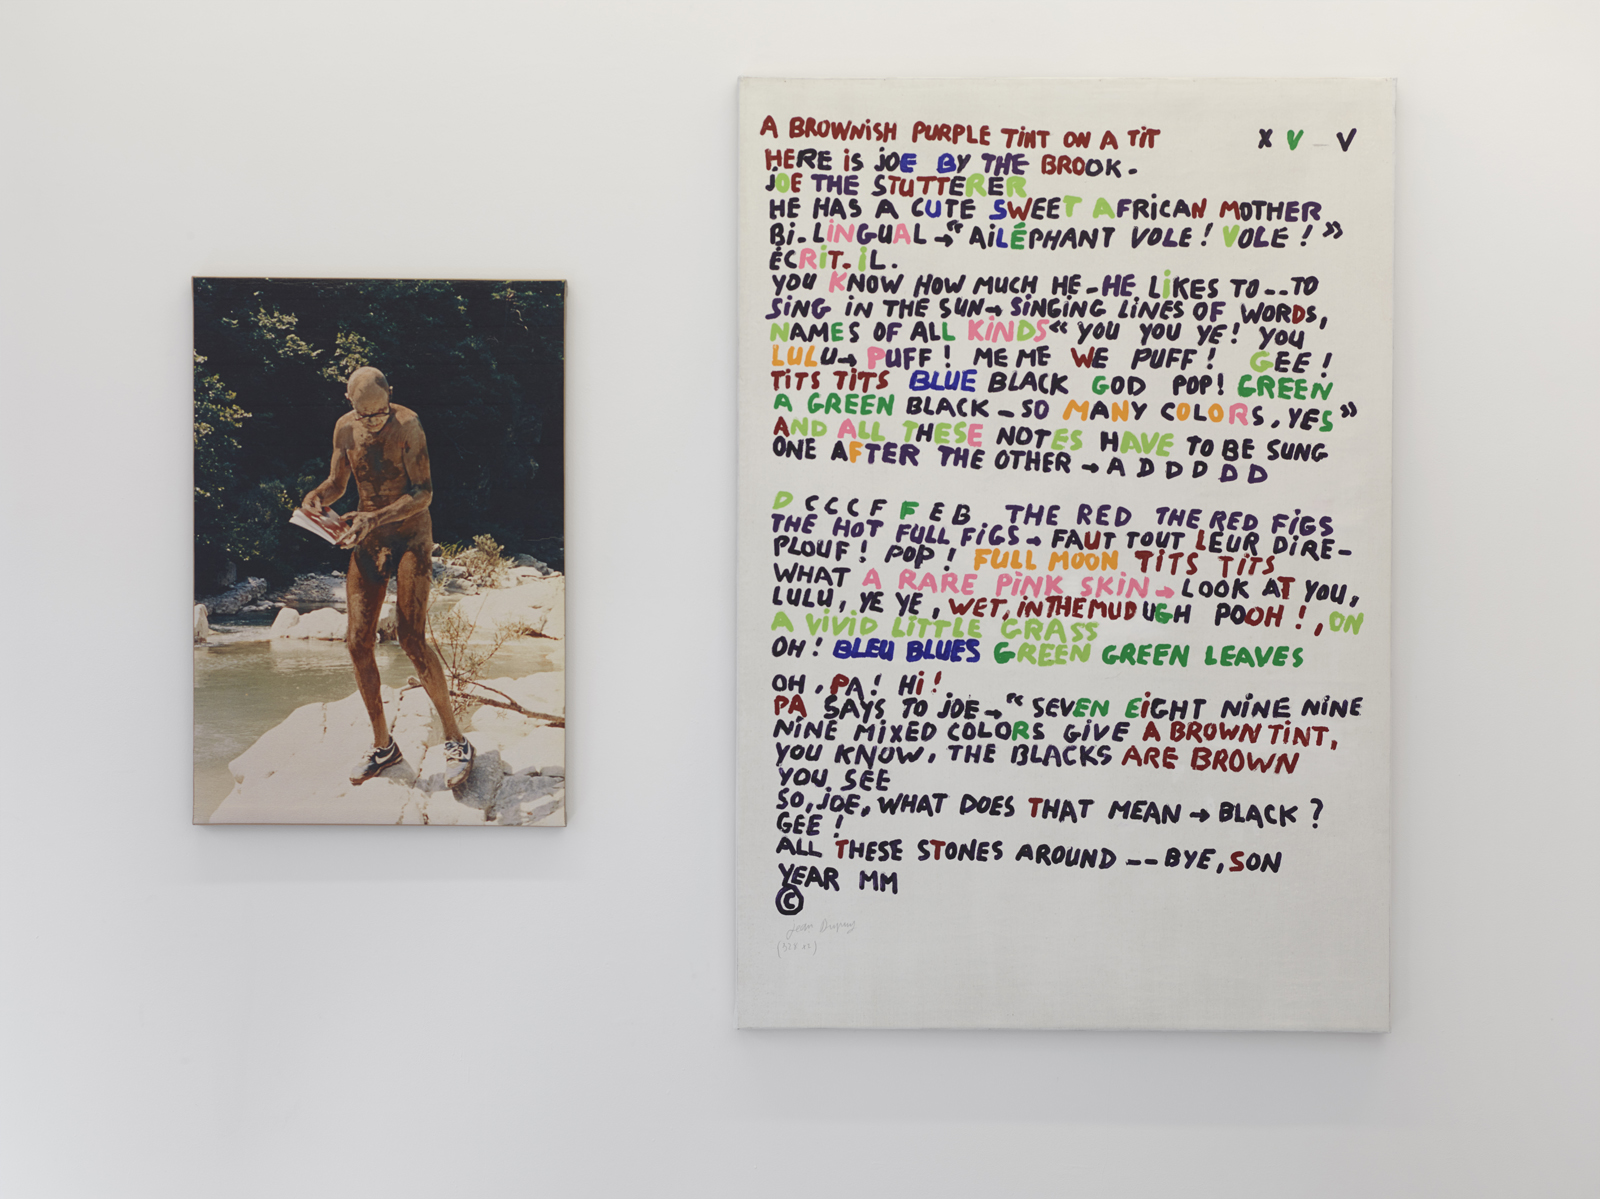 A BROWNiSH PURPLE TiNT ON A TiT X V _ V
HERE iS jOE BY THE BROOK.
JOE THE STUTTERER
HE HAS A CUTE SWEET AFRiCAN MOTHER
Bi. LiNGUAL → “AiLÉPHANT VOLE ! VOLE ! ”
ÉCRiT. iL.
YOU KNOW HOW MUCH HE - HE LiKES TO -- TO
SiNG iN THE SUN → SiNGiNG LiNES OF WORDS,
NAMES OF ALL KiNDS “ YOU YOU YE! YOU
LULU → PUFF ! ME ME WE PUFF ! GEE !
TiTS TiTS BLUE BLACK GOD POP! GREEN
A GREEN BLACK - SO MANY COLORS, YES ”
AND ALL THESE NOTES HAVE TO BE SUNG
ONE AFTER THE OTHER → A D D D D D
D C C C F F E B THE RED THE RED FiGS
THE HOT FULL FiGS → FAUT TOUT LEUR DiRE -
PLOUF ! POP ! FULL MOON TiTS TiTS
WHAT A RARE PiNK SKiN → LOOK AT YOU,
LULU, YE YE, WET, iN THE MUD UGH POOH ! , ON
A ViViD LiTTLE GRASS
OH ! BLEU BLUES GREEN GREEN LEAVES
OH , PA ! Hi !
PA SAYS TO JOE → “ SEVEN EiGHT NiNE NiNE
NiNE MiXED COLORS GiVE A BROWN TiNT,
YOU KNOW, THE BLACKS ARE BROWN
YOU SEE
SO, JOE, WHAT DOES THAT MEAN → BLACK ?
GEE !
ALL THESE STONES AROUND -- BYE, SON
YEAR MM
©
Jean Dupuy